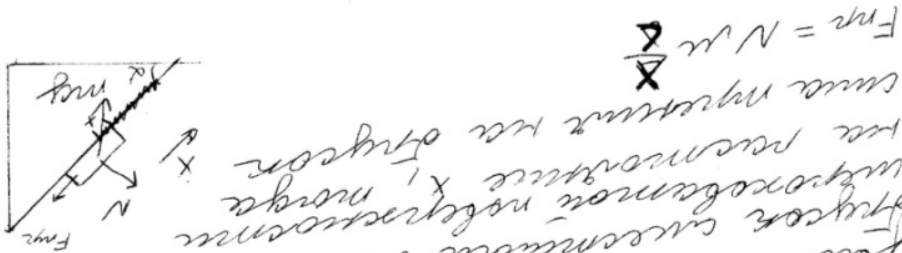 Брусок сместился
шероховатой поверхности
на расстояние x, тогда
сила трения на брусок
Fтр = Nμ x
Fтр
N
x
mg
α